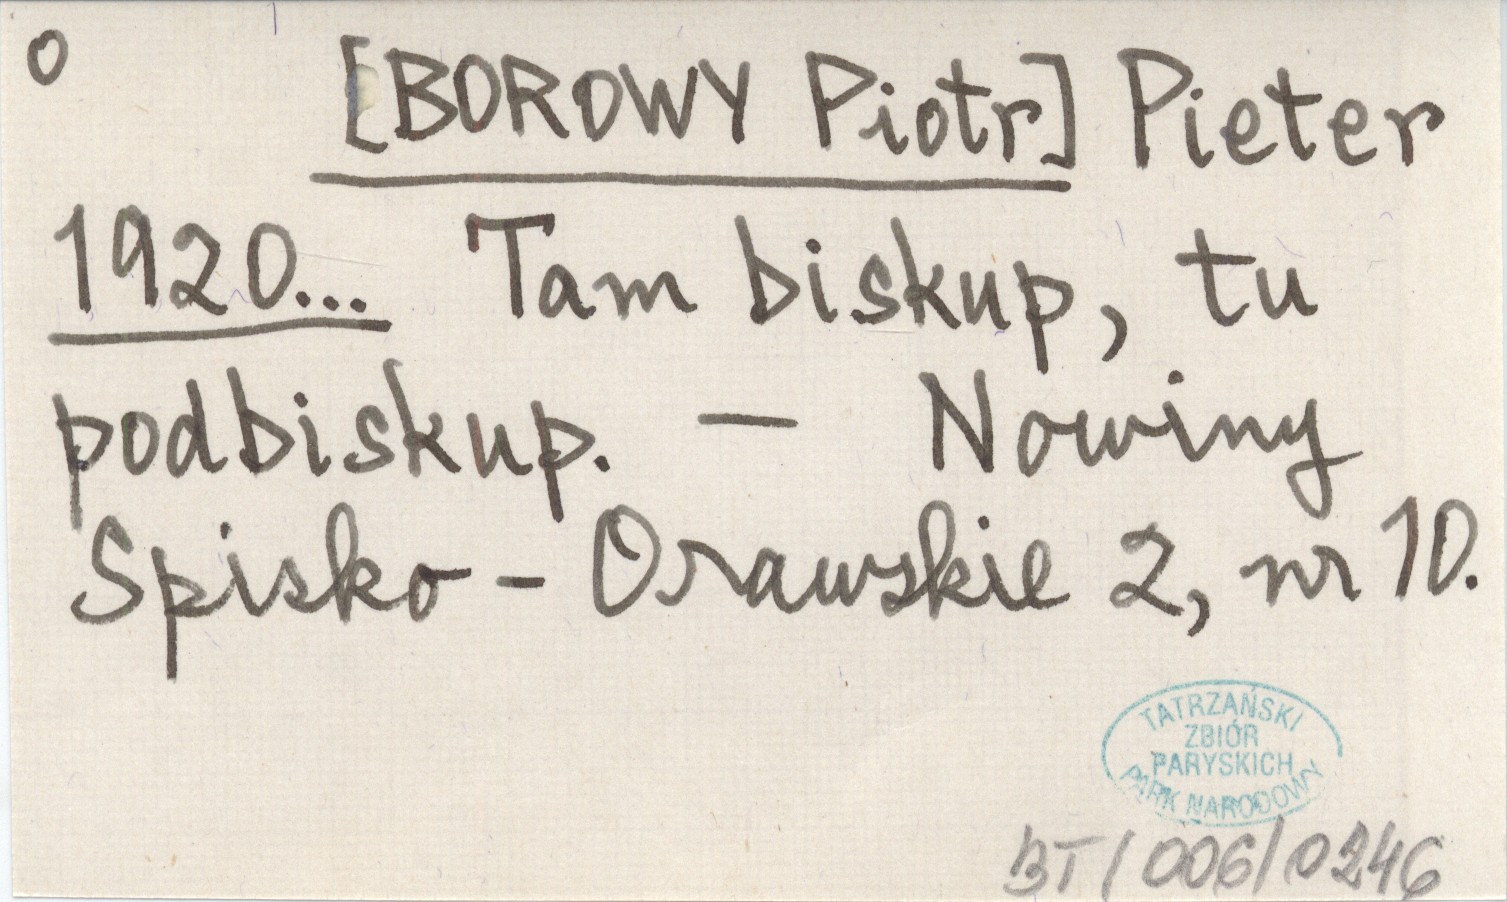 o [BOROWY Piotr] Pieter
1920... Tam biskup, tu
podbiskup. — Nowiny
Spisko-Orawskie 2, nr 10.
TATRZAŃSKI
ZBIÓR
PARYSKICH
PARK NARODOWY
BT/006/0246